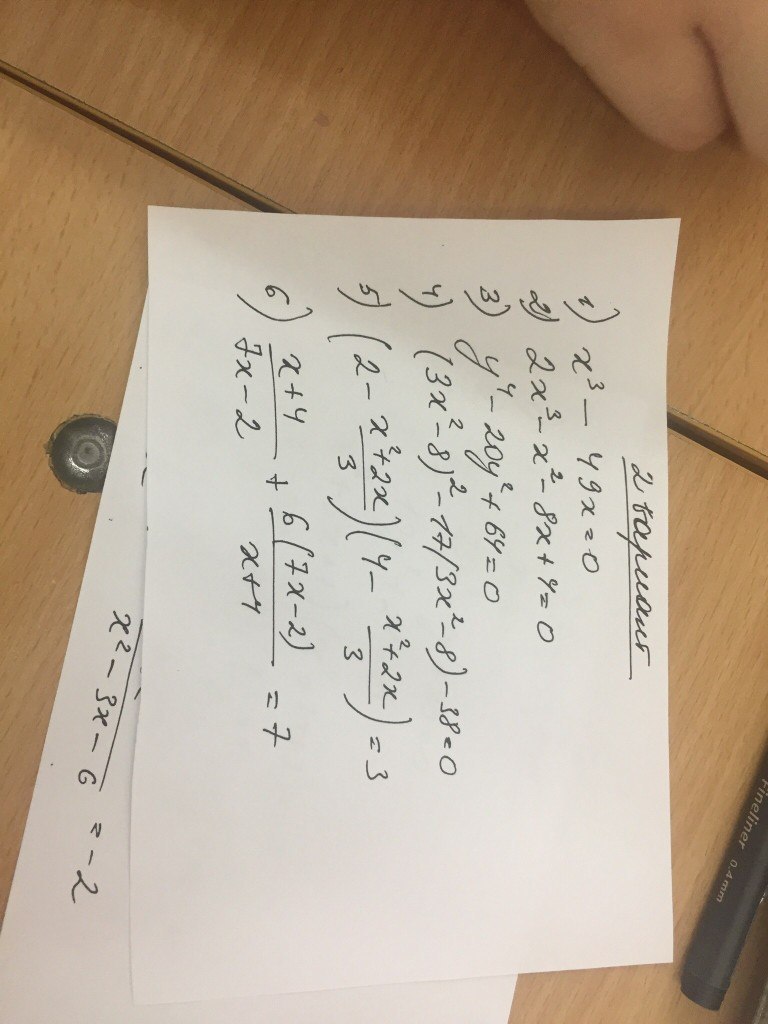 2 вариант
1) x³ - 49x = 0
2) 2x³ - x² - 8x + 4 = 0
3) y⁴ - 20y² + 64 = 0
4) (3x² - 8)² - 17(3x² - 8) - 38 = 0
5) (2 - (x² + 2x)/3)(4 - (x² + 2x)/3) = 3
6) (x + 4)/(7x - 2) + 6(7x - 2)/(x + 4) = 7
x² - 3x - 6 = -2
Fineliner 0.4mm